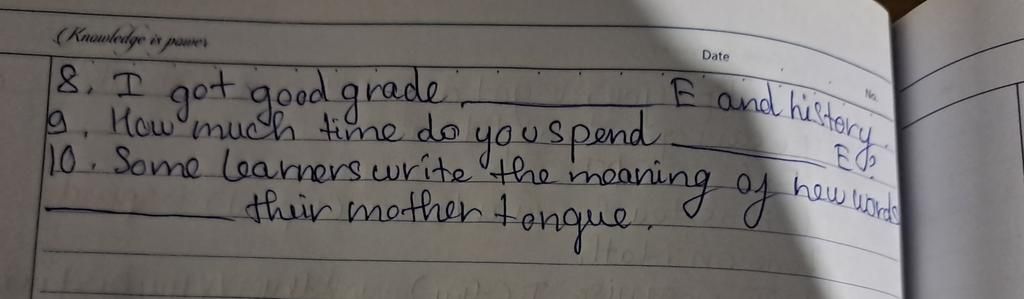 (Knowledge is power
Date
No.
8. I got good grade __________ E and history.
9. How much time do you spend __________ E?
10. Some learners write the meaning of new words
__________ their mother tongue.